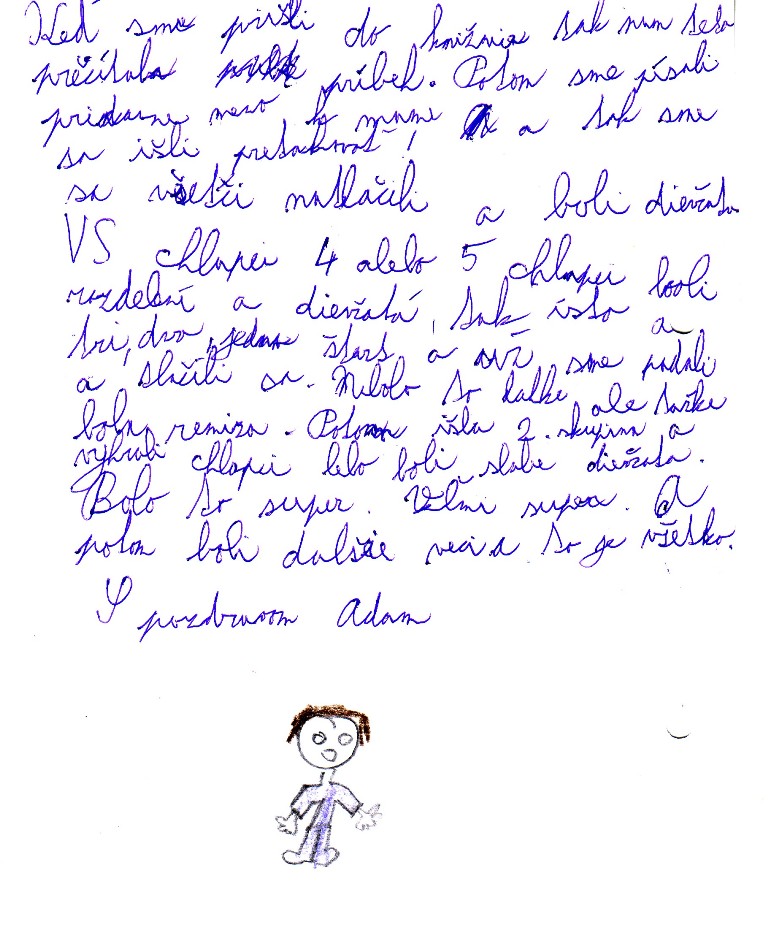 Keď sme prišli do knižnice tak num teta
prečítala príbeh. Potom sme písali
pridavne mená k mame a tak sme
sa išli pretahovať!
sa všetči natlačili a boli dievčata
VS chlapci 4 alebo 5 chlapci boli
rozdelení a dievčatá, tak isto a
tri, dva, jedna štart a už sme padali
a tlačili sa. Nebolo to ľatke ale ťažke
bola remiza. Potom išla 2. skupina a
vyhrali chlapci lebo boli slabe dievčata.
Bolo to super. Velmi super. A
potom boli dalšie veci a to je všetko.
S pozdravom Adam